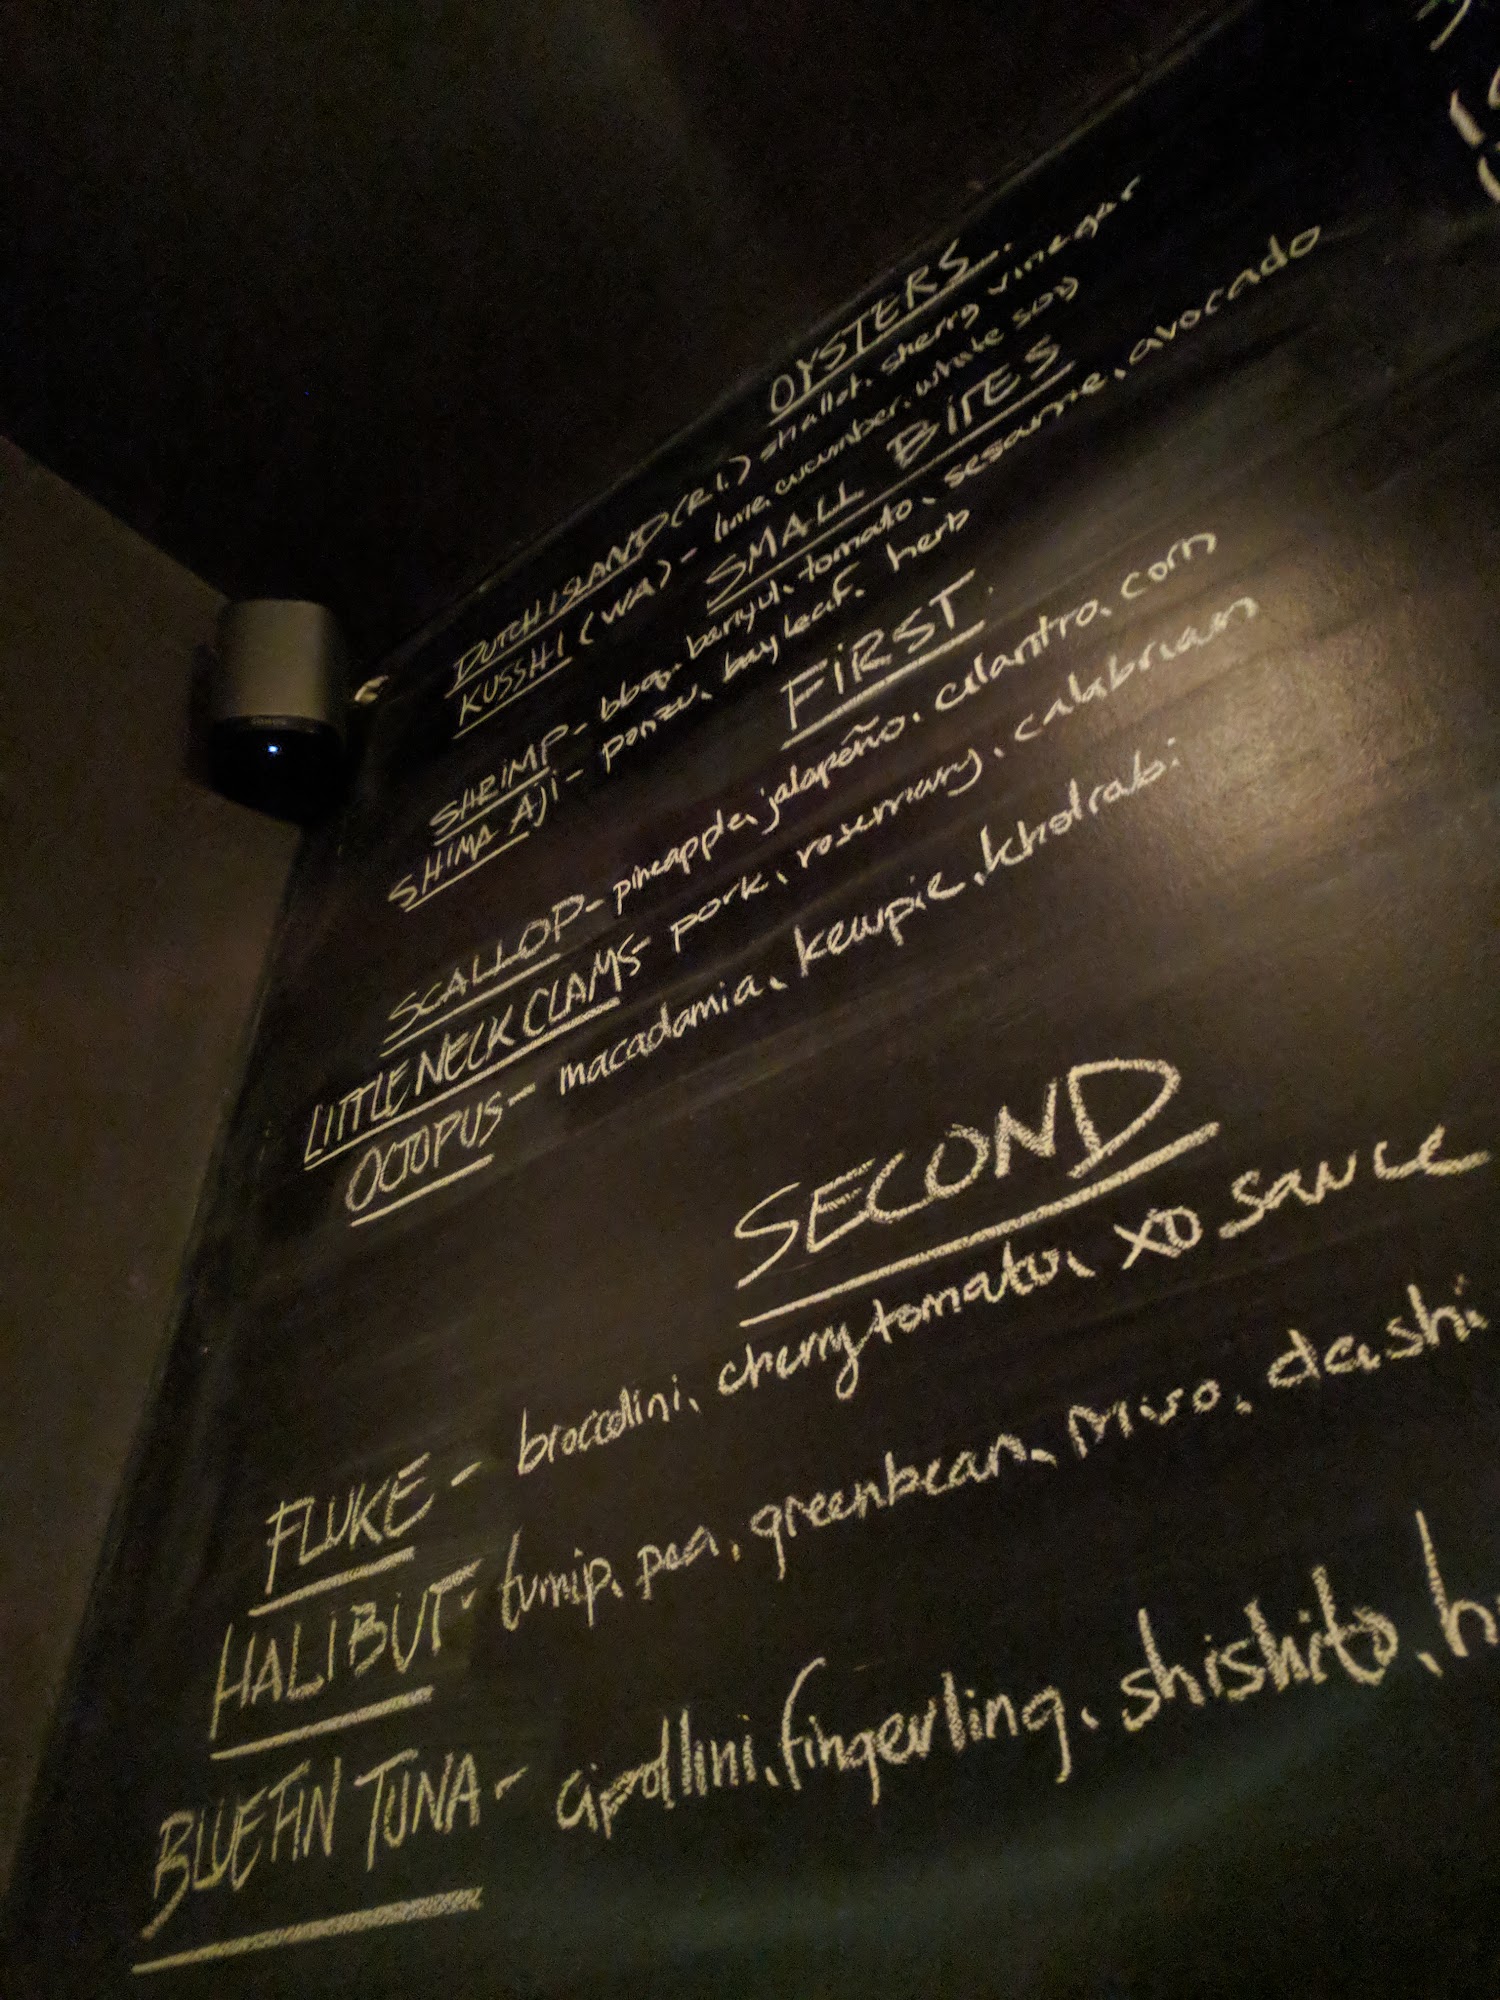 OYSTERS
DUTCH ISLAND (R.I.) shallot, sherry vinegar
KUSSHI (WA) - lime, cucumber, white soy
SMALL BITES
SHRIMP - bbq, banyul, tomato, sesame, avocado
SHIMA AJI - ponzu, bay leaf, herb
FIRST
SCALLOP - pineapple, jalapeño, cilantro, corn
LITTLE NECK CLAMS - pork, rosemary, calabrian
OCTOPUS - macadamia, kewpie, kholrabi
SECOND
FLUKE - broccolini, cherry tomato, xo sauce
HALIBUT - turnip, pea, greenbean, miso, dashi
BLUEFIN TUNA - cipollini, fingerling, shishito,
SONOS